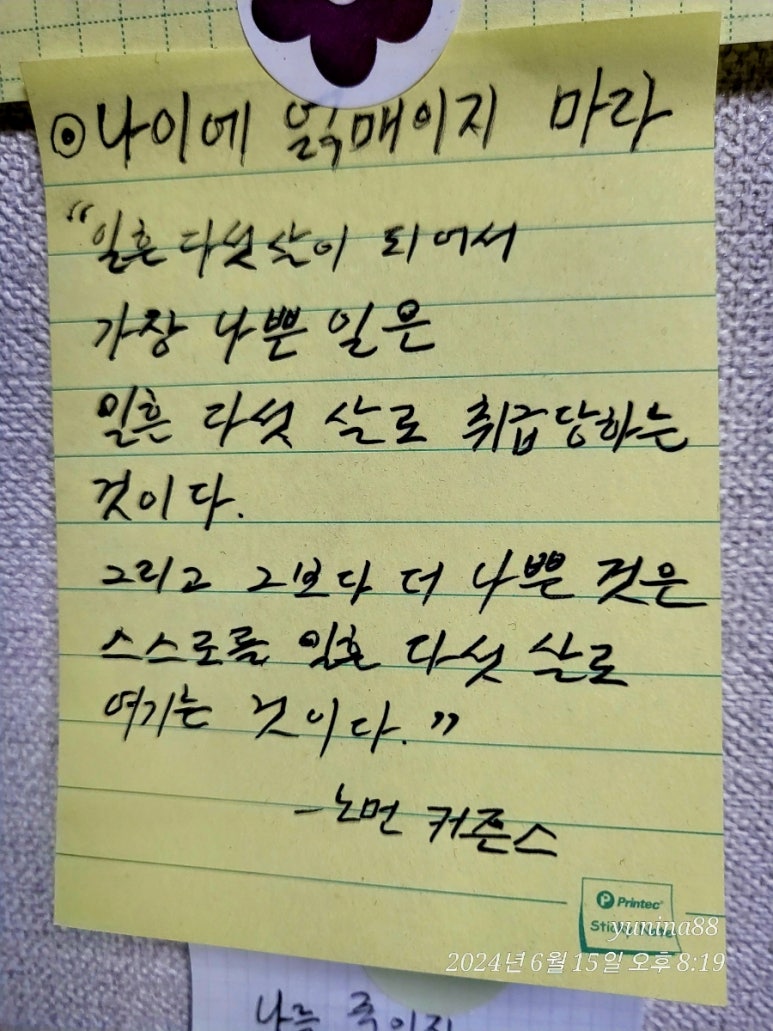 ⊙나이에 얽매이지 마라
“일흔 다섯 살이 되어서
가장 나쁜 일은
일흔 다섯 살로 취급당하는
것이다.
그리고 그보다 더 나쁜 것은
스스로를 일흔 다섯 살로
여기는 것이다.”
-노먼 커즌스
Printec
Sticky Note
yunina88
2024년 6월 15일 오후 8:19
나는